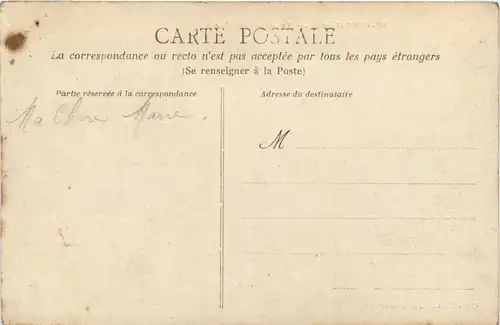 CARTE POSTALE
La correspondance au recto n'est pas acceptée par tous les pays étrangers
(Se renseigner à la Poste)
Partie réservée à la correspondance
Adresse du destinataire
Ma Chere Marie.
M